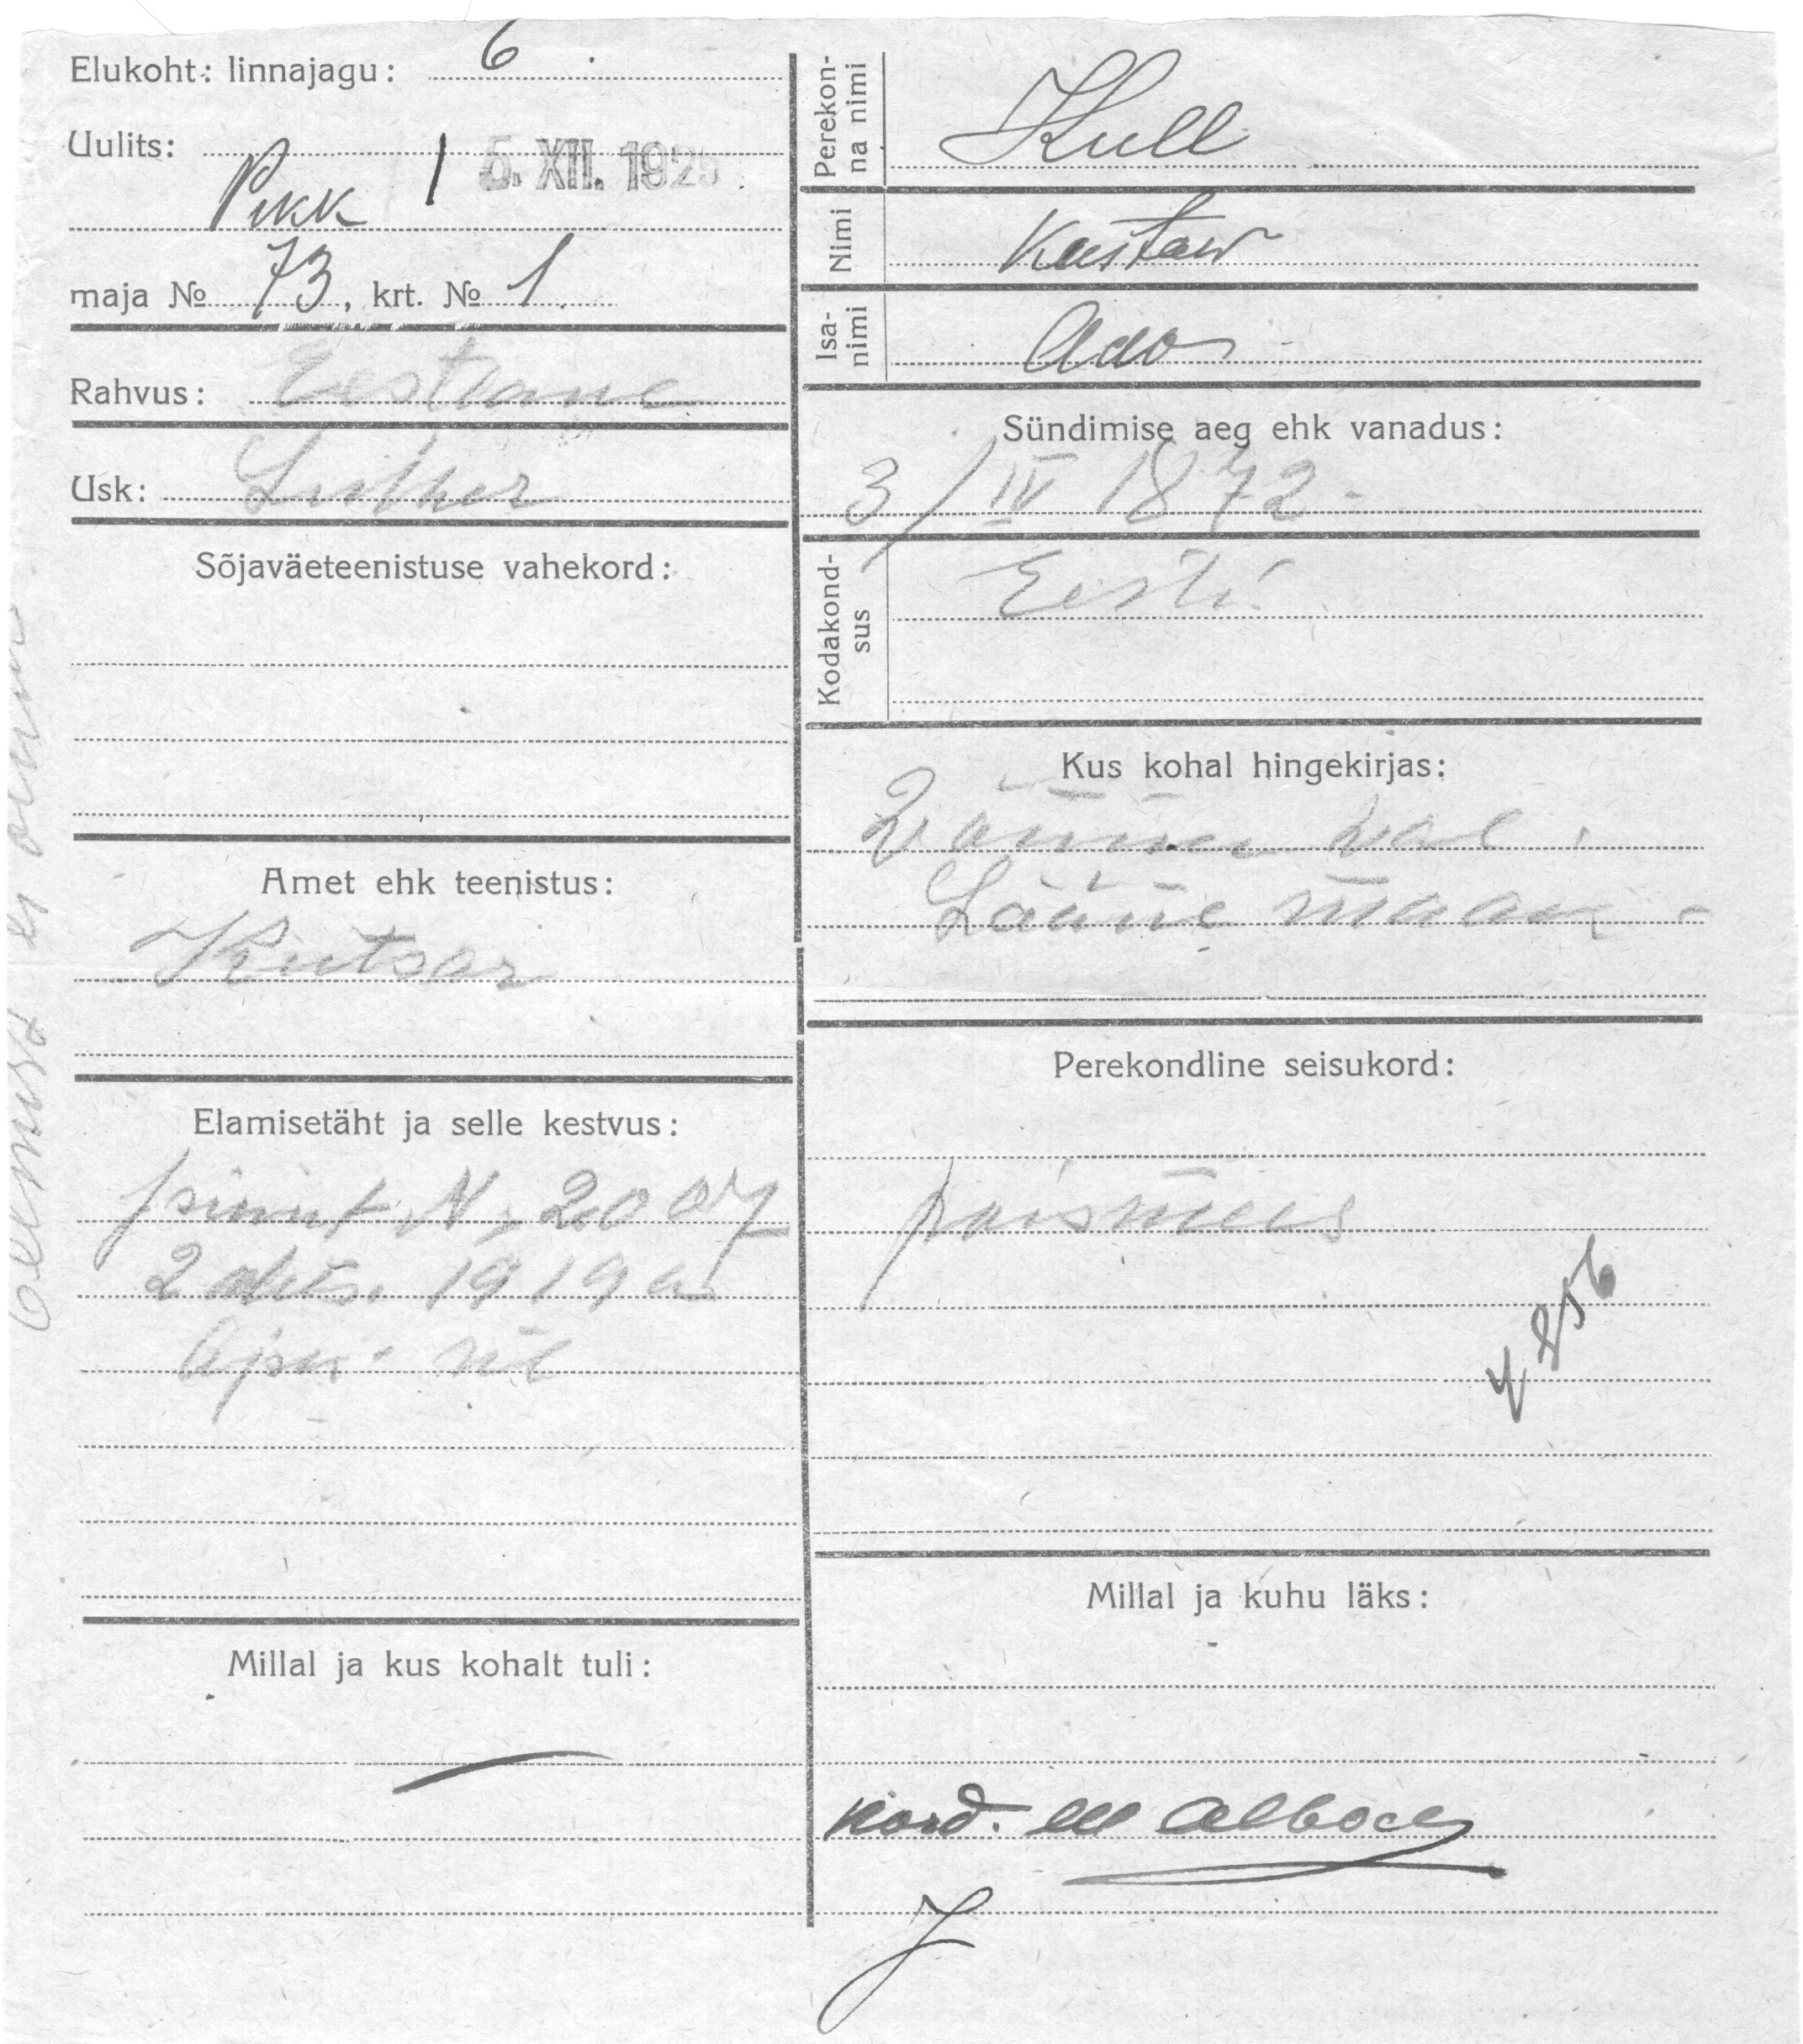 Elukoht: linnajagu: 6
Uulits:
Pikk
5. XII. 192
maja № 73, krt. № 1
Rahvus: Eestlane
Usk: Luther
Sõjaväeteenistuse vahekord:
Amet ehk teenistus:
Kutsar
Elamisetäht ja selle kestvus:
N, 2007
2 dets. 1919 a
Millal ja kus kohalt tuli:
Perekon-
na nimi
Kull
Nimi
Kustaw
Isa-
nimi
Ado
Sündimise aeg ehk vanadus:
3/IV 1872
Kodakond-
sus
Eesti
Kus kohal hingekirjas:
val
Lääne maa
Perekondline seisukord:
poismees
Millal ja kuhu läks:
Kord.